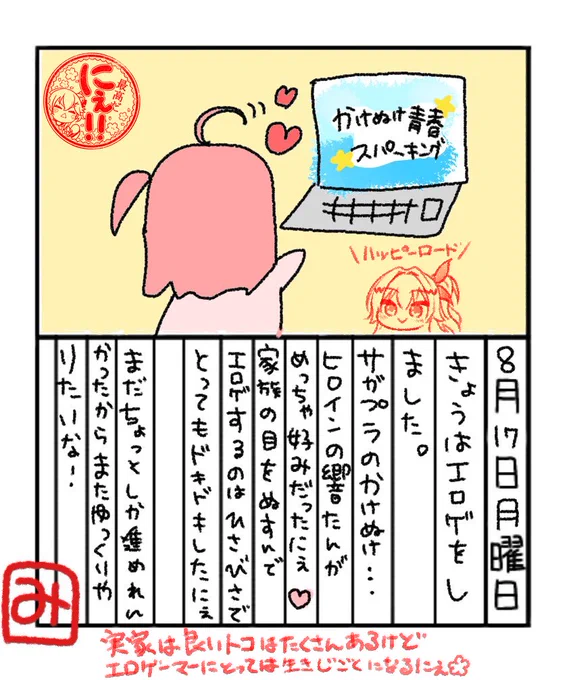 最高だ
にぇ!!
かけぬけ青春
スパーキング
\ハッピーロード/
8月17日月曜日
きょうはエロゲをし
ました。
サガプラのかけぬけ...
ヒロインの響たんが
めっちゃ好みだったにぇ♥
家族の目をぬすんで
エロゲするのはひさびさで
とってもドキドキしたにぇ
まだちょっとしか進めれてな
かったからまたゆっくりや
りたいな!
み
実家は良いトコはたくさんあるけど
エロゲーマーにとっては生きじごくになるにぇ